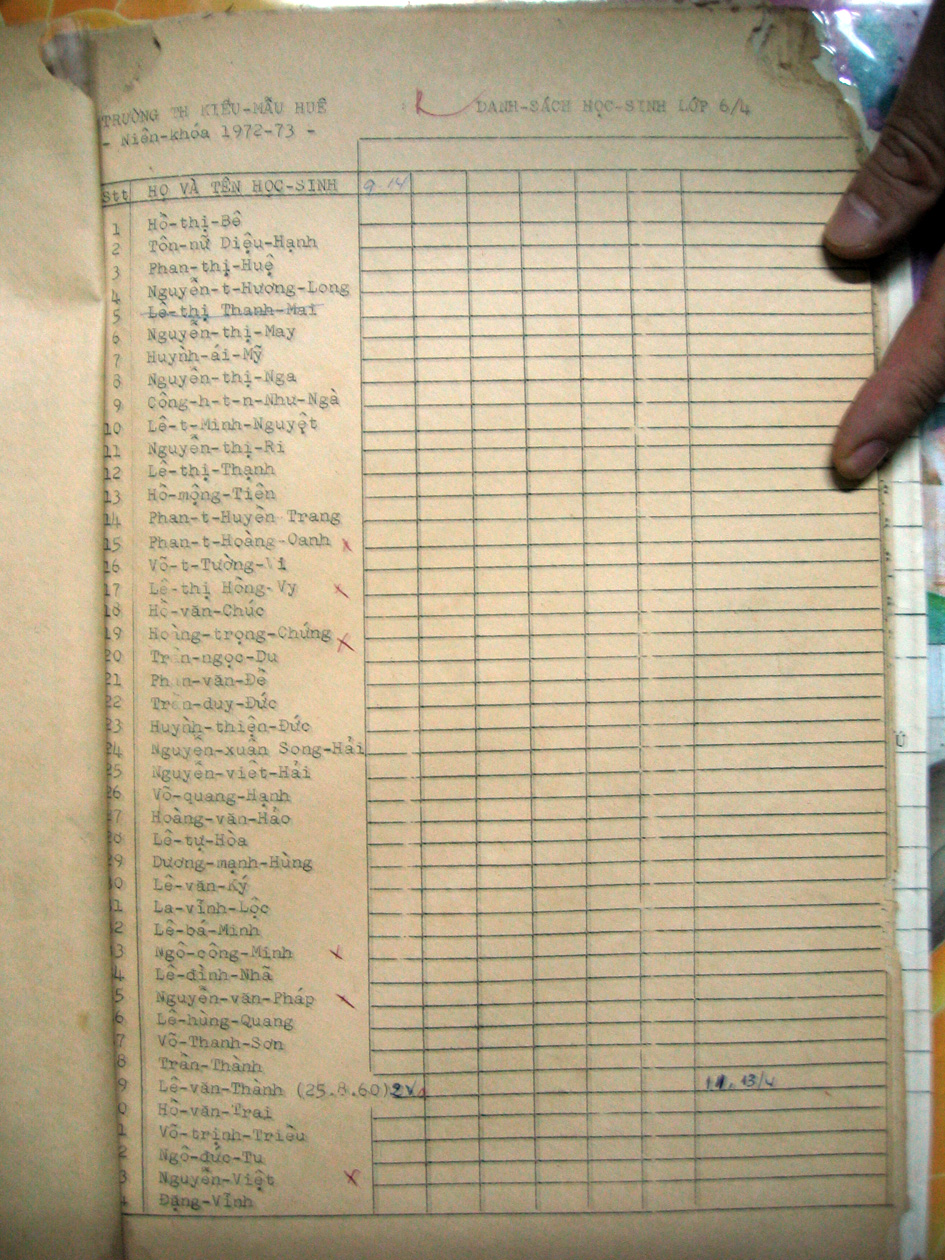 TRƯỜNG TH KIỂU-MẪU HUẾ
DANH-SÁCH HỌC-SINH LỚP 6/4
- Niên-khóa 1972-73 -
Stt HỌ VÀ TÊN HỌC-SINH 9-14
1 Hồ-thị-Bê
2 Tôn-nữ Diệu-Hạnh
3 Phan-thị-Huệ
4 Nguyễn-t-Hương-Long
5 Lê-thị Thanh-Mai
6 Nguyễn-thị-May
7 Huỳnh-ái-Mỹ
8 Nguyễn-thị-Nga
9 Công-h-t-n-Như-Ngà
10 Lê-t-Minh-Nguyệt
11 Nguyễn-thị-Ri
12 Lê-thị-Thạnh
13 Hồ-mộng-Tiên
14 Phan-t-Huyền Trang
15 Phan-t-Hoàng-Oanh x
16 Võ-t-Tường-Vi
17 Lê-thị Hồng-Vy x
18 Hồ-văn-Chúc
19 Hoàng-trọng-Chứng x
20 Trần-ngọc-Du
21 Phan-văn-Đề
22 Trần-duy-Đức
23 Huỳnh-thiện-Đức
24 Nguyễn-xuân Song-Hải
25 Nguyễn-viết-Hải
26 Võ-quang-Hạnh
27 Hoàng-văn-Hảo
28 Lê-tự-Hòa
29 Dương-mạnh-Hùng
0 Lê-văn-Ký
1 La-vĩnh-Lộc
2 Lê-bá-Minh
3 Ngô-công-Minh x
4 Lê-đình-Nhã
5 Nguyễn-văn-Pháp x
6 Lê-hùng-Quang
7 Võ-Thanh-Sơn
8 Trần-Thành
9 Lê-văn-Thành (25.8.60) 2V 13/4
0 Hồ-văn-Trai
1 Võ-trịnh-Triều
2 Ngô-đức-Tu
3 Nguyễn-Việt x
4 Đặng-Vĩnh